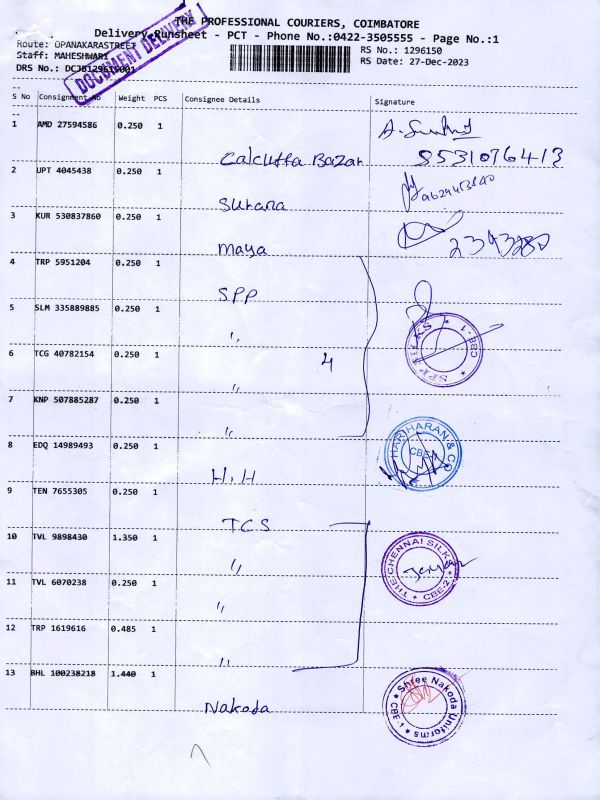 THE PROFESSIONAL COURIERS, COIMBATORE
Delivery Runsheet - PCT - Phone No.:0422-3505555 - Page No.:1
Route: OPANAKARASTREET
Staff: MAHESHWARI
DRS No.:
RS No.: 1296150
RS Date: 27-Dec-2023
DOCUMENT DELIVERY
S No Consignment No Weight PCS Consignee Details Signature
1 AMD 27594586 0.250 1
Calcutta Bazar 8531076413
2 UPT 4045438 0.250 1
Suhana
3 KUR 530837860 0.250 1
Maya
4 TRP 5951204 0.250 1
SPP
5 SLM 335889885 0.250 1
"
SPP SILKS * CBE-1 *
6 TCG 40782154 0.250 1
4
"
7 KNP 507885287 0.250 1
"
8 EDQ 14989493 0.250 1
HARIHARAN & CO CBE-1
H.H
9 TEN 7655305 0.250 1
TCS
10 TVL 9898430 1.350 1
"
THE CHENNAI SILKS * CBE-2 *
11 TVL 6070238 0.250 1
"
12 TRP 1619616 0.485 1
"
13 BHL 100238218 1.440 1
Nakoda
Shree Nakoda Uniforms * CBE-1 *